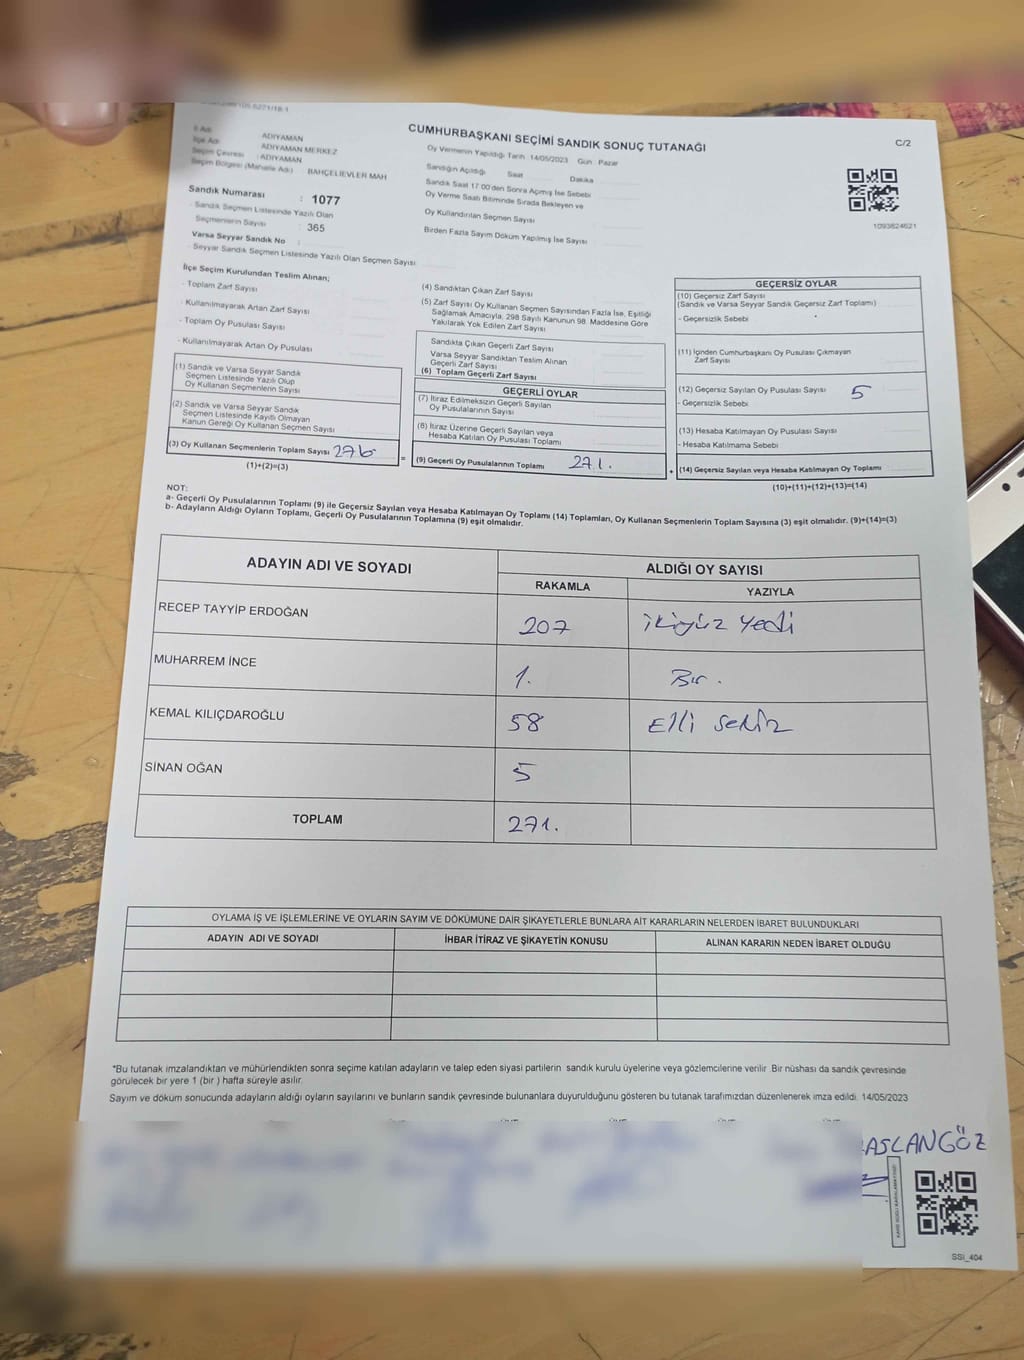 CUMHURBAŞKANI SEÇİMİ SANDIK SONUÇ TUTANAĞI
C/2
İl Adı ADIYAMAN
İlçe Adı ADIYAMAN MERKEZ
Seçim Çevresi : ADIYAMAN
Seçim Bölgesi (Mahalle Adı) BAHÇELİEVLER MAH
Sandık Numarası : 1077
- Sandık Seçmen Listesinde Yazılı Olan
Seçmenlerin Sayısı : 365
Varsa Seyyar Sandık No :
- Seyyar Sandık Seçmen Listesinde Yazılı Olan Seçmen Sayısı
Oy Vermenin Yapıldığı Tarih : 14/05/2023 Gün : Pazar
Sandığın Açıldığı Saat Dakika
Sandık Saat 17.00'den Sonra Açımış İse Sebebi
Oy Verme Saati Bitiminde Sırada Bekleyen ve
Oy Kullandırılan Seçmen Sayısı
Birden Fazla Sayım Döküm Yapılmış İse Sayısı
1093824621
İlçe Seçim Kurulundan Teslim Alınan;
- Toplam Zarf Sayısı
- Kullanılmayarak Artan Zarf Sayısı
- Toplam Oy Pusulası Sayısı
- Kullanılmayarak Artan Oy Pusulası
(1) Sandık ve Varsa Seyyar Sandık
Seçmen Listesinde Yazılı Olup
Oy Kullanan Seçmenlerin Sayısı
(2) Sandık ve Varsa Seyyar Sandık
Seçmen Listesinde Kayıtlı Olmayan
Kanun Gereği Oy Kullanan Seçmen Sayısı
(3) Oy Kullanan Seçmenlerin Toplam Sayısı 276
(1)+(2)=(3)
(4) Sandıktan Çıkan Zarf Sayısı
(5) Zarf Sayısı Oy Kullanan Seçmen Sayısından Fazla İse, Eşitliği
Sağlamak Amacıyla, 298 Sayılı Kanunun 98. Maddesine Göre
Yakılarak Yok Edilen Zarf Sayısı
Sandıkta Çıkan Geçerli Zarf Sayısı
Varsa Seyyar Sandıktan Teslim Alınan
Geçerli Zarf Sayısı
(6) Toplam Geçerli Zarf Sayısı
GEÇERLİ OYLAR
(7) İtiraz Edilmeksizin Geçerli Sayılan
Oy Pusulalarının Sayısı
(8) İtiraz Üzerine Geçerli Sayılan veya
Hesaba Katılan Oy Pusulası Toplamı
= (9) Geçerli Oy Pusulalarının Toplamı 271.
GEÇERSİZ OYLAR
(10) Geçersiz Zarf Sayısı
(Sandık ve Varsa Seyyar Sandık Geçersiz Zarf Toplamı)
- Geçersizlik Sebebi
(11) İçinden Cumhurbaşkanı Oy Pusulası Çıkmayan
Zarf Sayısı
(12) Geçersiz Sayılan Oy Pusulası Sayısı 5
- Geçersizlik Sebebi
(13) Hesaba Katılmayan Oy Pusulası Sayısı
- Hesaba Katılmama Sebebi
+ (14) Geçersiz Sayılan veya Hesaba Katılmayan Oy Toplamı
(10)+(11)+(12)+(13)=(14)
NOT:
a- Geçerli Oy Pusulalarının Toplamı (9) ile Geçersiz Sayılan veya Hesaba Katılmayan Oy Toplamı (14) Toplamları, Oy Kullanan Seçmenlerin Toplam Sayısına (3) eşit olmalıdır. (9)+(14)=(3)
b- Adayların Aldığı Oyların Toplamı, Geçerli Oy Pusulalarının Toplamına (9) eşit olmalıdır.
ADAYIN ADI VE SOYADI
ALDIĞI OY SAYISI
RAKAMLA YAZIYLA
RECEP TAYYİP ERDOĞAN 207 ikiyüz yedi
MUHARREM İNCE 1. Bir.
KEMAL KILIÇDAROĞLU 58 Elli sekiz
SİNAN OĞAN 5
TOPLAM 271.
OYLAMA İŞ VE İŞLEMLERİNE VE OYLARIN SAYIM VE DÖKÜMÜNE DAİR ŞİKAYETLERLE BUNLARA AİT KARARLARIN NELERDEN İBARET BULUNDUKLARI
ADAYIN ADI VE SOYADI İHBAR İTİRAZ VE ŞİKAYETİN KONUSU ALINAN KARARIN NEDEN İBARET OLDUĞU
*Bu tutanak imzalandıktan ve mühürlendikten sonra seçime katılan adayların ve talep eden siyasi partilerin sandık kurulu üyelerine veya gözlemcilerine verilir. Bir nüshası da sandık çevresinde
görülecek bir yere 1 (bir ) hafta süreyle asılır.
Sayım ve döküm sonucunda adayların aldığı oyların sayılarını ve bunların sandık çevresinde bulunanlara duyurulduğunu gösteren bu tutanak tarafımızdan düzenlenerek imza edildi. 14/05/2023
ASLANGÖZ
SSİ_404